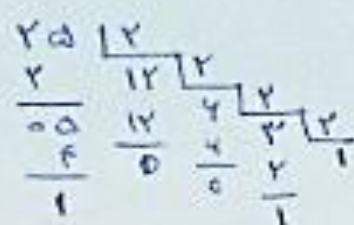 ۲۵ ۲
۲ ۱۲ ۲
۰۵ ۱۲ ۶ ۲
۴ ۰ ۶ ۳ ۲
۱ ۰ ۲ ۱
۱